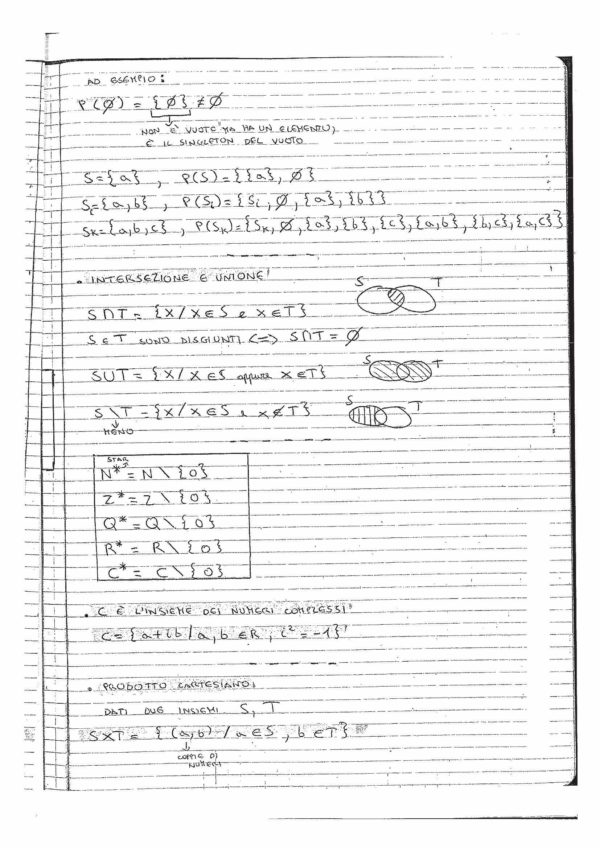 AD ESEMPIO:
P(∅) = {∅} ≠ ∅
NON È VUOTO MA HA UN ELEMENTO,
È IL SINGLETON DEL VUOTO
S={a} , P(S)={{a}, ∅}
Si={a,b} , P(Si)={Si, ∅, {a}, {b}}
SK={a,b,c} , P(SK)={SK, ∅, {a}, {b}, {c}, {a,b}, {b,c}, {a,c}}
• INTERSEZIONE E UNIONE
S T
S∩T = {x/x∈S e x∈T}
S E T SONO DISGIUNTI <=> S∩T = ∅
S T
S∪T = {x/x∈S oppure x∈T}
S T
S \ T = {x/x∈S e x∉T}
MENO
STAR
N* = N \ {0}
Z* = Z \ {0}
Q* = Q \ {0}
R* = R \ {0}
C* = C \ {0}
• C È L'INSIEME DEI NUMERI COMPLESSI
C = {a+ib / a,b ∈R, i² = -1}
• PRODOTTO CARTESIANO
DATI DUE INSIEMI S, T
S×T = {(a,b) / a∈S, b∈T}
COPPIE DI
NUMERI